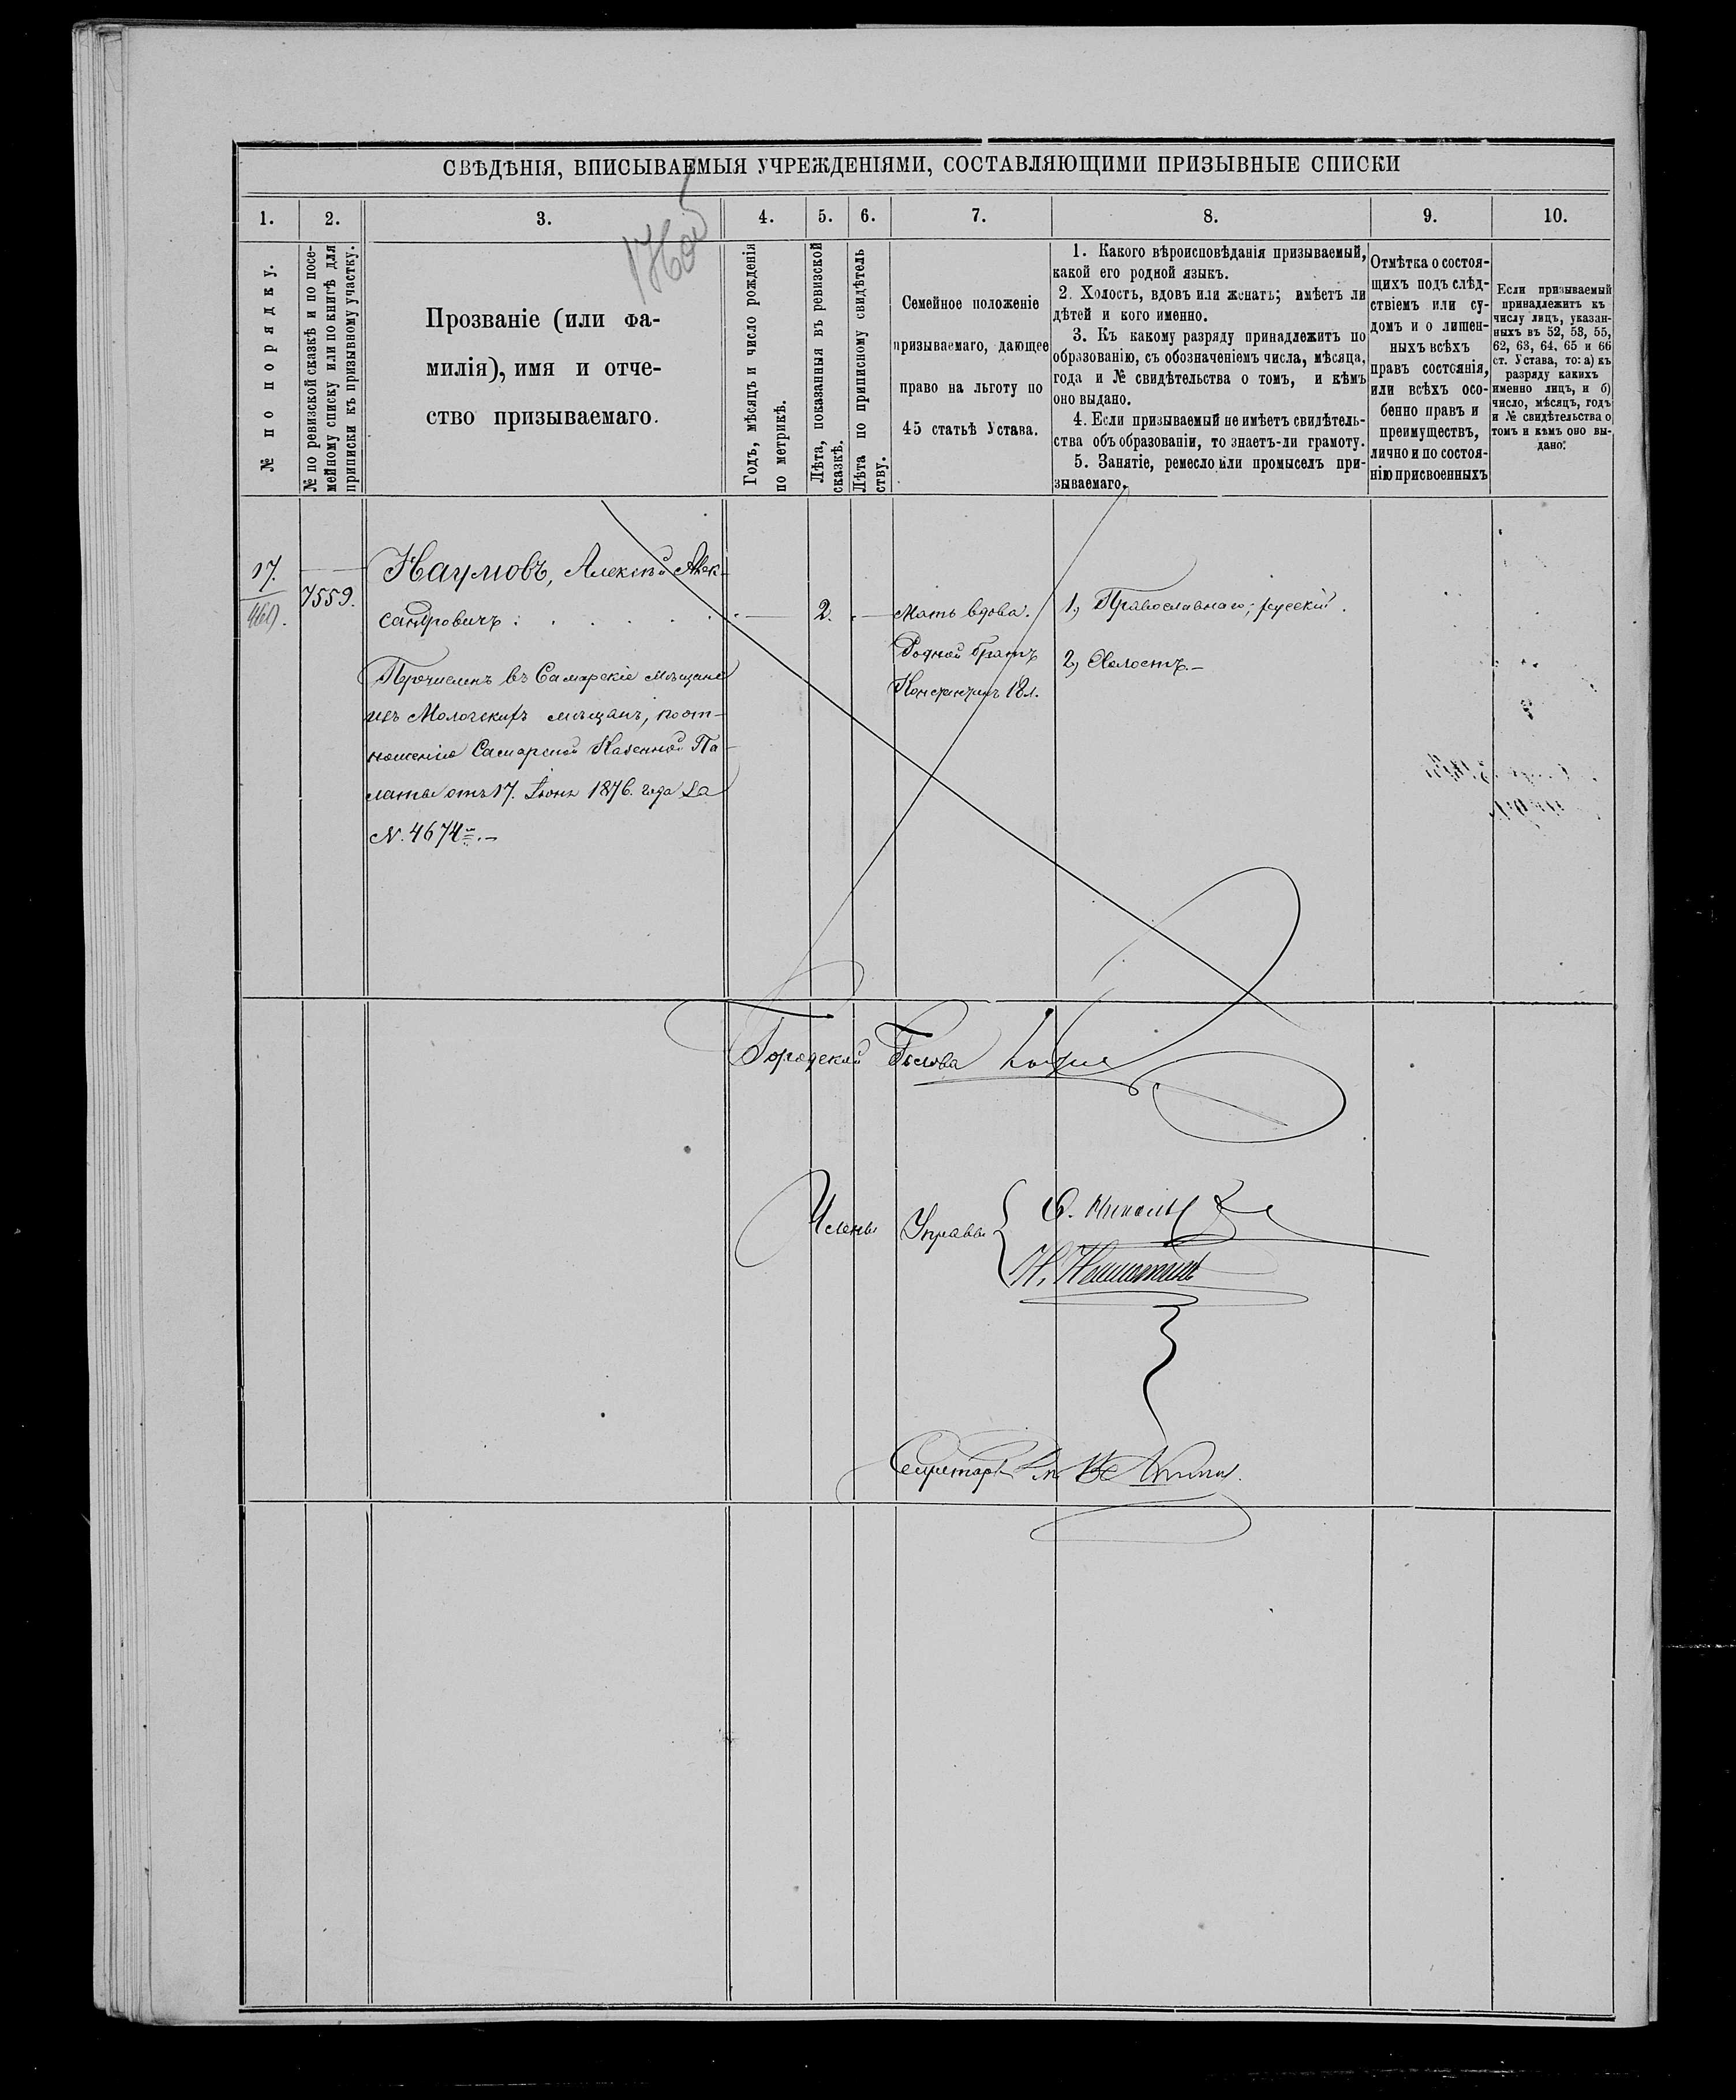 СВѢДѢНІЯ, ВПИСЫВАЕМЫЯ УЧРЕЖДЕНІЯМИ, СОСТАВЛЯЮЩИМИ ПРИЗЫВНЫЕ СПИСКИ
1.
2.
3.
4.
5.
6.
7.
8.
9.
10.
№ по порядку.
№ по ревизской сказкѣ и по посе-
мейному списку или по книгѣ для
приписки къ призывному участку.
Прозваніе (или фа-
милія), имя и отче-
ство призываемаго.
Годъ, мѣсяцъ и число рожденія
по метрикѣ.
Лѣта, показанныя въ ревизской
сказкѣ.
Лѣта по приписному свидѣтель
ству.
Семейное положеніе
призываемаго, дающее
право на льготу по
45 статьѣ Устава.
1. Какого вѣроисповѣданія призываемый,
какой его родной языкъ.
2. Холостъ, вдовъ или женатъ; имѣетъ ли
дѣтей и кого именно.
3. Къ какому разряду принадлежитъ по
образованію, съ обозначеніемъ числа, мѣсяца,
года и № свидѣтельства о томъ, и кѣмъ
оно выдано.
4. Если призываемый не имѣетъ свидѣтель-
ства объ образованіи, то знаетъ-ли грамоту.
5. Занятіе, ремесло или промыселъ при-
зываемаго.
Отмѣтка о состоя-
щихъ подъ слѣд-
ствіемъ или су-
домъ и о лишен-
ныхъ всѣхъ
правъ состоянія,
или всѣхъ осо-
бенно правъ и
преимуществъ,
лично и по состоя-
нію присвоенныхъ
Если призываемый
принадлежитъ къ
числу лицъ, указан-
ныхъ въ 52, 53, 55,
62, 63, 64. 65 и 66
ст. Устава, то: а) къ
разряду какихъ
именно лицъ, и б)
число, мѣсяцъ, годъ
и № свидѣтельства о
томъ и кѣмъ оно вы-
дано.
17.
7559.
Наумовъ, Алексѣй Алек-
сандровичъ
2.
Мать вдова.
Родной братъ
Константинъ 18 л.
1, Православнаго; русскій.
2, Холостъ.—
Перечисленъ въ Самарскіе мѣщане
изъ Мологскихъ мѣщанъ, по от-
ношенію Самарской Казенной Па-
латы отъ 17. Іюня 1876. года за
N. 4674
Городской Голова
Члены Управы
Секретарь